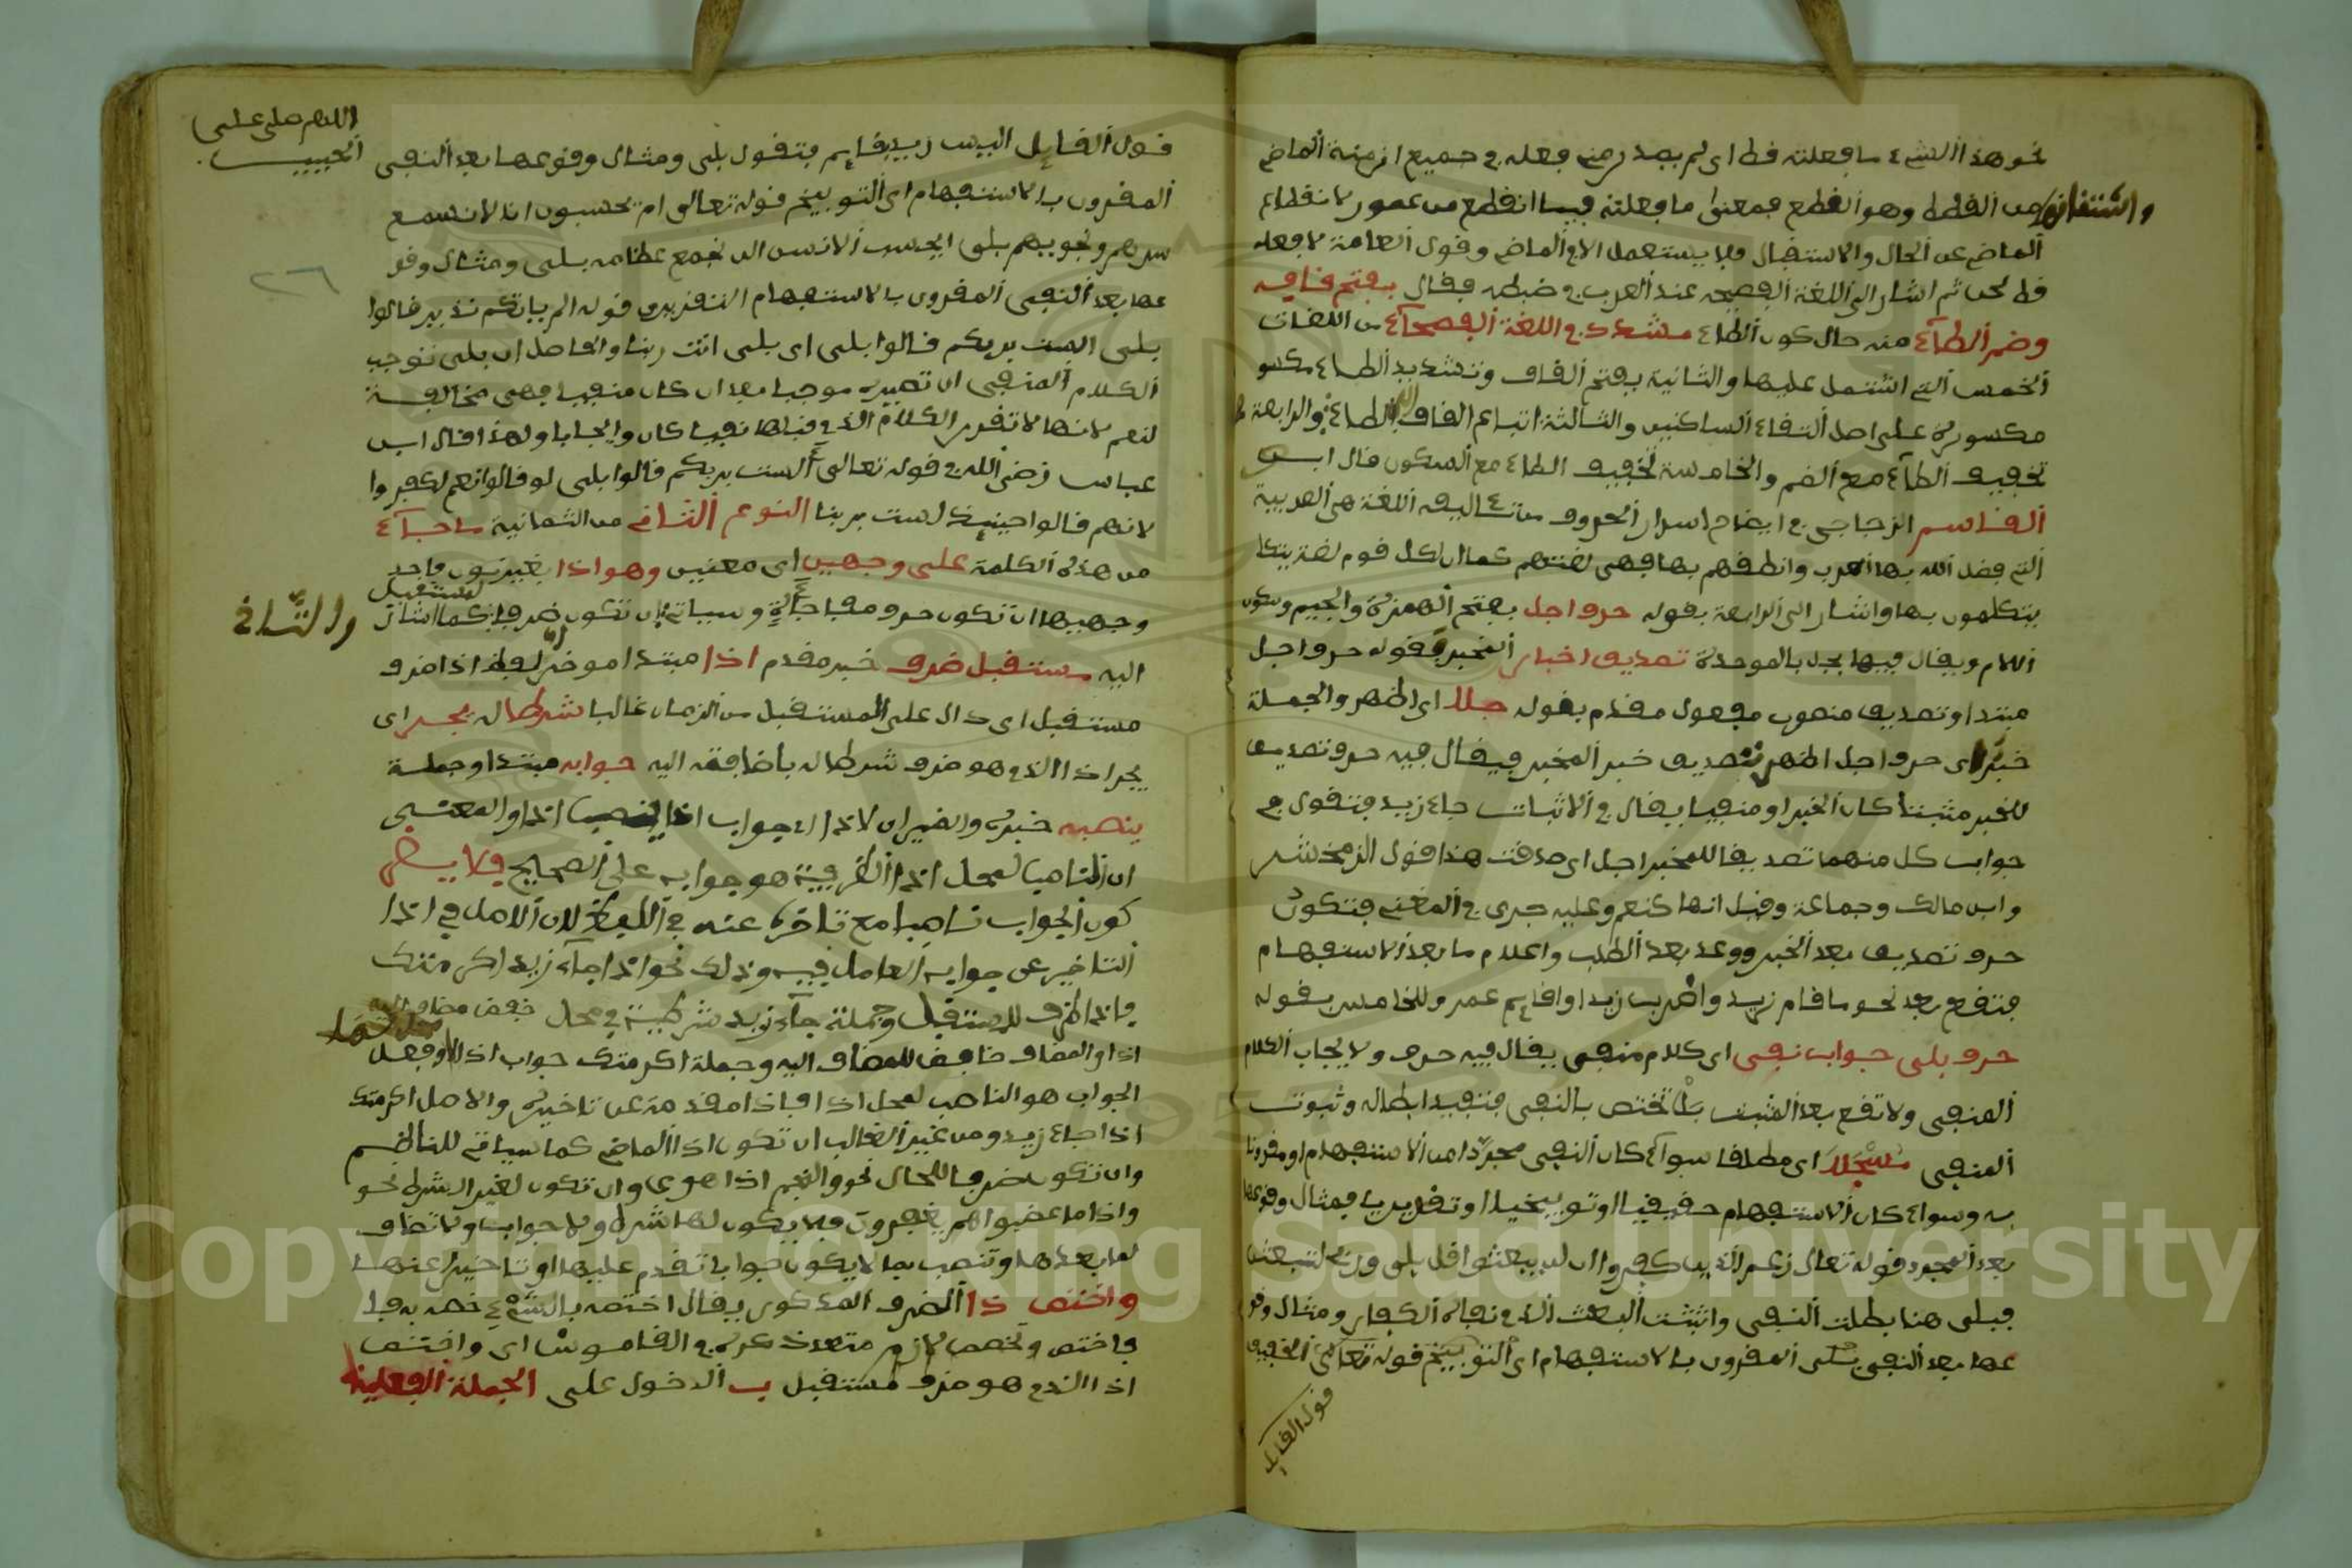 نحو هذا الشيء ما فعلته قط اى لم يصدر منى فعله في جميع ازمنة الماضي
واشتقاقها من القط وهو القطع فمعنى ما فعلته فيما انقطع من عمرى لانقطاع
الماضي عن الحال والاستقبال فلا يستعمل الا في الماضي وقول العامة لا افعله
قط لحن ثم اشار الى اللغة الفصيحه عند العرب في ضبطه فقال بفتح قافه
وضم الطآء منه حال كون الطاء مشدد في اللغة الفصحآء من اللغات
الخمس التي اشتمل عليها والثانية بفتح القاف وتشديد الطاء مكسو
مكسورة على اصل التقاء الساكنين والثالثة اتباع القاف للطاء والرابعة
تخفيف الطآء مع الضم والخامسة تخفيف الطاء مع السكون قال ابو
القاسم الزجاجي في ايضاح اسرار النحو من تـاليفه اللغة هي العربية
التي فضل الله بها العرب وانطقهم بها فهي لغتهم كما ان لكل قوم لغة يتكا
يتكلمون بها واشار الى الرابعة بقوله حرف اجل بفتح الهمزة والجيم وسكون
اللام ويقال فيها بجل بالموحدة تصديق اخبار المخبر فقوله حرف اجل
مبتدا وتصديق منصوب مفعول مقدم بقوله جلا اى اظهر والجملة
خبر اى حرف اجل اظهر تصديق خبر المخبر فيقال فيه حرف تصديق
للخبر مثبتا كان الخبر او منفيا يقال في الاثبات جاء زيد فتقول في
جواب كل منهما تصديقا للمخبر اجل اى صدقت هذا قول الزمخشر
وابن مالك وجماعة وقيل انها كنعم وعليه جرى في المغني فتكون
حرف تصديق بعد الخبر ووعد بعد الطلب واعلام ما بعد الاستفهام
فتقع بعد نحو ما قام زيد واضرب زيدا واقايم عمر وللخامس بقوله
حرف بلى جواب نفى اى كلام منفى يقال فيه حرف ولايجاب الكلام
المنفى ولا تقع بعد المثبت بل تختص بالنفى فتفيد ابطاله وثبوت
المنفى مسجلا اى مطلقا سوآء كان النفى مجردا من الاستفهام او مقرونا
به وسواء كان الاستفهام حقيقيا او توبيخيا او تقديريا فمثال وقوعها
بعد المجرد قوله تعالى زعم الذين كفروا ان لن يبعثوا قل بلى وربي لتبعثن
فبلى هنا بطلت النفى واثبتت البعث الذي نفاه الكفار ومثال وقو
عها بعد النفى المقرون بالاستفهام اى قوله الحقيق
قول القايل
اللهم صلى على
الحبيب
٢٦
قول القايل اليس زيد بقايم فتقول بلى ومثال وقوعها بعد النفى
المقرون بالاستفهام اى التوبيخ قوله تعالى ام يحسبون انا لا نسمع
سرهم ونجويهم بلى ايحسب الانسن الن نجمع عظامه بلى ومثال وقو
عها بعد النفى المقرون بالاستفهام التقريرى قوله الم ياتكم نذير قالوا
بلى الست بربكم قالوا بلى اى بلى انت ربنا والحاصل ان بلى توجب
الكلام المنفى اى تصيره موجبا بعد ان كان منفيا فهى مخالفة
لنعم لانها لا تقرر الكلام الذي قبلها نفيا كان وايجابا ولهذا قال ابن
عباس رضى الله في قوله تعالى ألست بربكم قالوا بلى لو قالوا نعم لكفروا
لانهم قالوا حينيذ لست بربنا النوع الثاني من الثمانية ما جآء
من هذه الكلمة على وجهين اى معنيين وهو اذا بغير تنوين فاحد
وجهيها ان تكون حرف مفاجأة وسياتي ان تكون ظرفا لمستقبل كما اشار
والثاني
اليه مستقبل ظرف خبر مقدم اذا مبتدا موخر لفظ اذا ظرف
مستقبل اى دال على المستقبل من الزمان غالبا شرطا له يجر اى
يجر اذا الذي هو ظرف شرطا له باضافته اليه جوابه مبتدا وجملة
ينصبه خبره والضمير ان لاذا اى جواب اذا ينصب اذا والمعنى
ان الناصب لمحل اذا الظرفية هو جوابه على الصحيح فلا يضر
كون الجواب ناصبا مع تاخره عنه في اللفظ لان الاصل في اذا
التاخير عن جوابه العامل فيه وذلك نحو اذا جآء زيد اكرمتك
فاذا ظرف للمستقبل وجملة جآء زيد شرطية في محل خفض مضاف اليه
اذا والمضاف خافض للمضاف اليه وجملة اكرمتك جواب اذا وفعل
الجواب هو الناصب لمحل اذا فاذا مقدمة عن تاخير والاصل اكرمتك
اذا جاء زيد ومن غير الغالب ان تكون اذا الماضي كما سياتي للناظم
وان تكون ظرفا للحال نحو والنجم اذا هوى وان تكون لغير الشرط نحو
واذا ما غضبوا هم يغفرون فلا يكون لها شرط ولا جواب ولا تضاف
لما بعدها وتنصب بما لا يكون جوابا تقدم عليها او تاخير عنها
واختص ذا الظرف المذكور يقال اختصه بالشيء خصه به فا
فاختص وتخصص لازم متعد ذكره في القاموس اى واختص
اذا الذي هو ظرف مستقبل بـ الدخول على الجملة الفعلية
Copyright © King Saud University